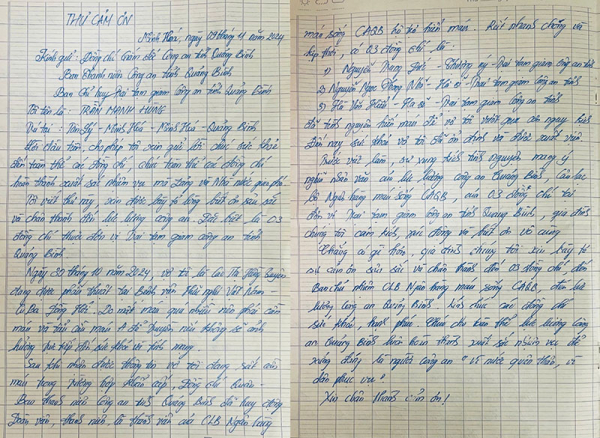 THƯ CẢM ƠN
Minh Hóa, ngày 09 tháng 11 năm 2024
Kính gửi: Đồng chí Giám đốc Công an tỉnh Quảng Bình
Ban Thanh niên Công an tỉnh Quảng Bình
Ban Chỉ huy Trại tạm giam Công an tỉnh Quảng Bình
Tôi tên là: TRẦN MẠNH HÙNG
Trú tại: Minh Hóa - Quảng Bình
Đầu tiên, cho phép tôi xin gửi lời chúc sức khỏe
đến toàn thể các đồng chí, chúc toàn thể các đồng chí
hoàn thành xuất sắc nhiệm vụ mà Đảng và Nhà nước giao phó.
Tôi viết thư này, xin được bày tỏ lòng biết ơn sâu sắc
và chân thành đến lực lượng Công an. Đặc biệt là 03
đồng chí thuộc đơn vị Trại tạm giam Công an tỉnh
Quảng Bình
Ngày 30 tháng 10 năm 2024, vợ tôi là
đang được phẫu thuật tại Bệnh viện Hữu nghị Việt Nam -
Cu Ba Đồng Hới. Do mất máu quá nhiều nên phải cần
máu và cần máu A để truyền nếu không sẽ ảnh
hưởng trực tiếp đến sức khỏe và tính mạng.
Sau khi nhận được thông tin vợ tôi đang rất cần
máu trong trường hợp khẩn cấp, Đồng chí
Ban thanh niên Công an tỉnh Quảng Bình đã huy động
Đoàn viên, thanh niên, là thành viên của CLB Ngân hàng
máu sống CAQB hỗ trợ hiến máu. Rất nhanh chóng và
kịp thời, có 03 đồng chí là:
1) Nguyễn - Thượng úy - Trại tạm giam Công an tỉnh
2) Nguyễn Ngọc - Trại tạm giam Công an tỉnh
3) - Trại tạm giam Công an tỉnh
Đã tình nguyện hiến máu để vợ tôi vượt qua cơn nguy kịch.
Đến nay sức khỏe vợ tôi đã ổn định và được xuất viện.
Trước việc làm, sự xung kích tình nguyện mang ý
nghĩa nhân văn của lực lượng Công an Quảng Bình, Câu lạc
bộ Ngân hàng máu sống CAQB, của 03 đồng chí tại
đơn vị Trại tạm giam Công an tỉnh Quảng Bình, gia đình
chúng tôi cảm kích, xúc động và biết ơn vô cùng
Chẳng có gì hơn, gia đình chúng tôi xin bày tỏ
sự cảm ơn sâu sắc và chân thành đến 03 đồng chí, đến
Ban chủ nhiệm CLB Ngân hàng máu sống CAQB, đến lực
lượng Công an Quảng Bình. Kính chúc các đồng chí
sức khỏe, hạnh phúc. chúc cho toàn thể lực lượng Công
an Quảng Bình luôn hoàn thành xuất sắc nhiệm vụ để
xứng đáng là người Công an "Vì nước quên thân, vì
dân phục vụ"
Xin chân thành cảm ơn!